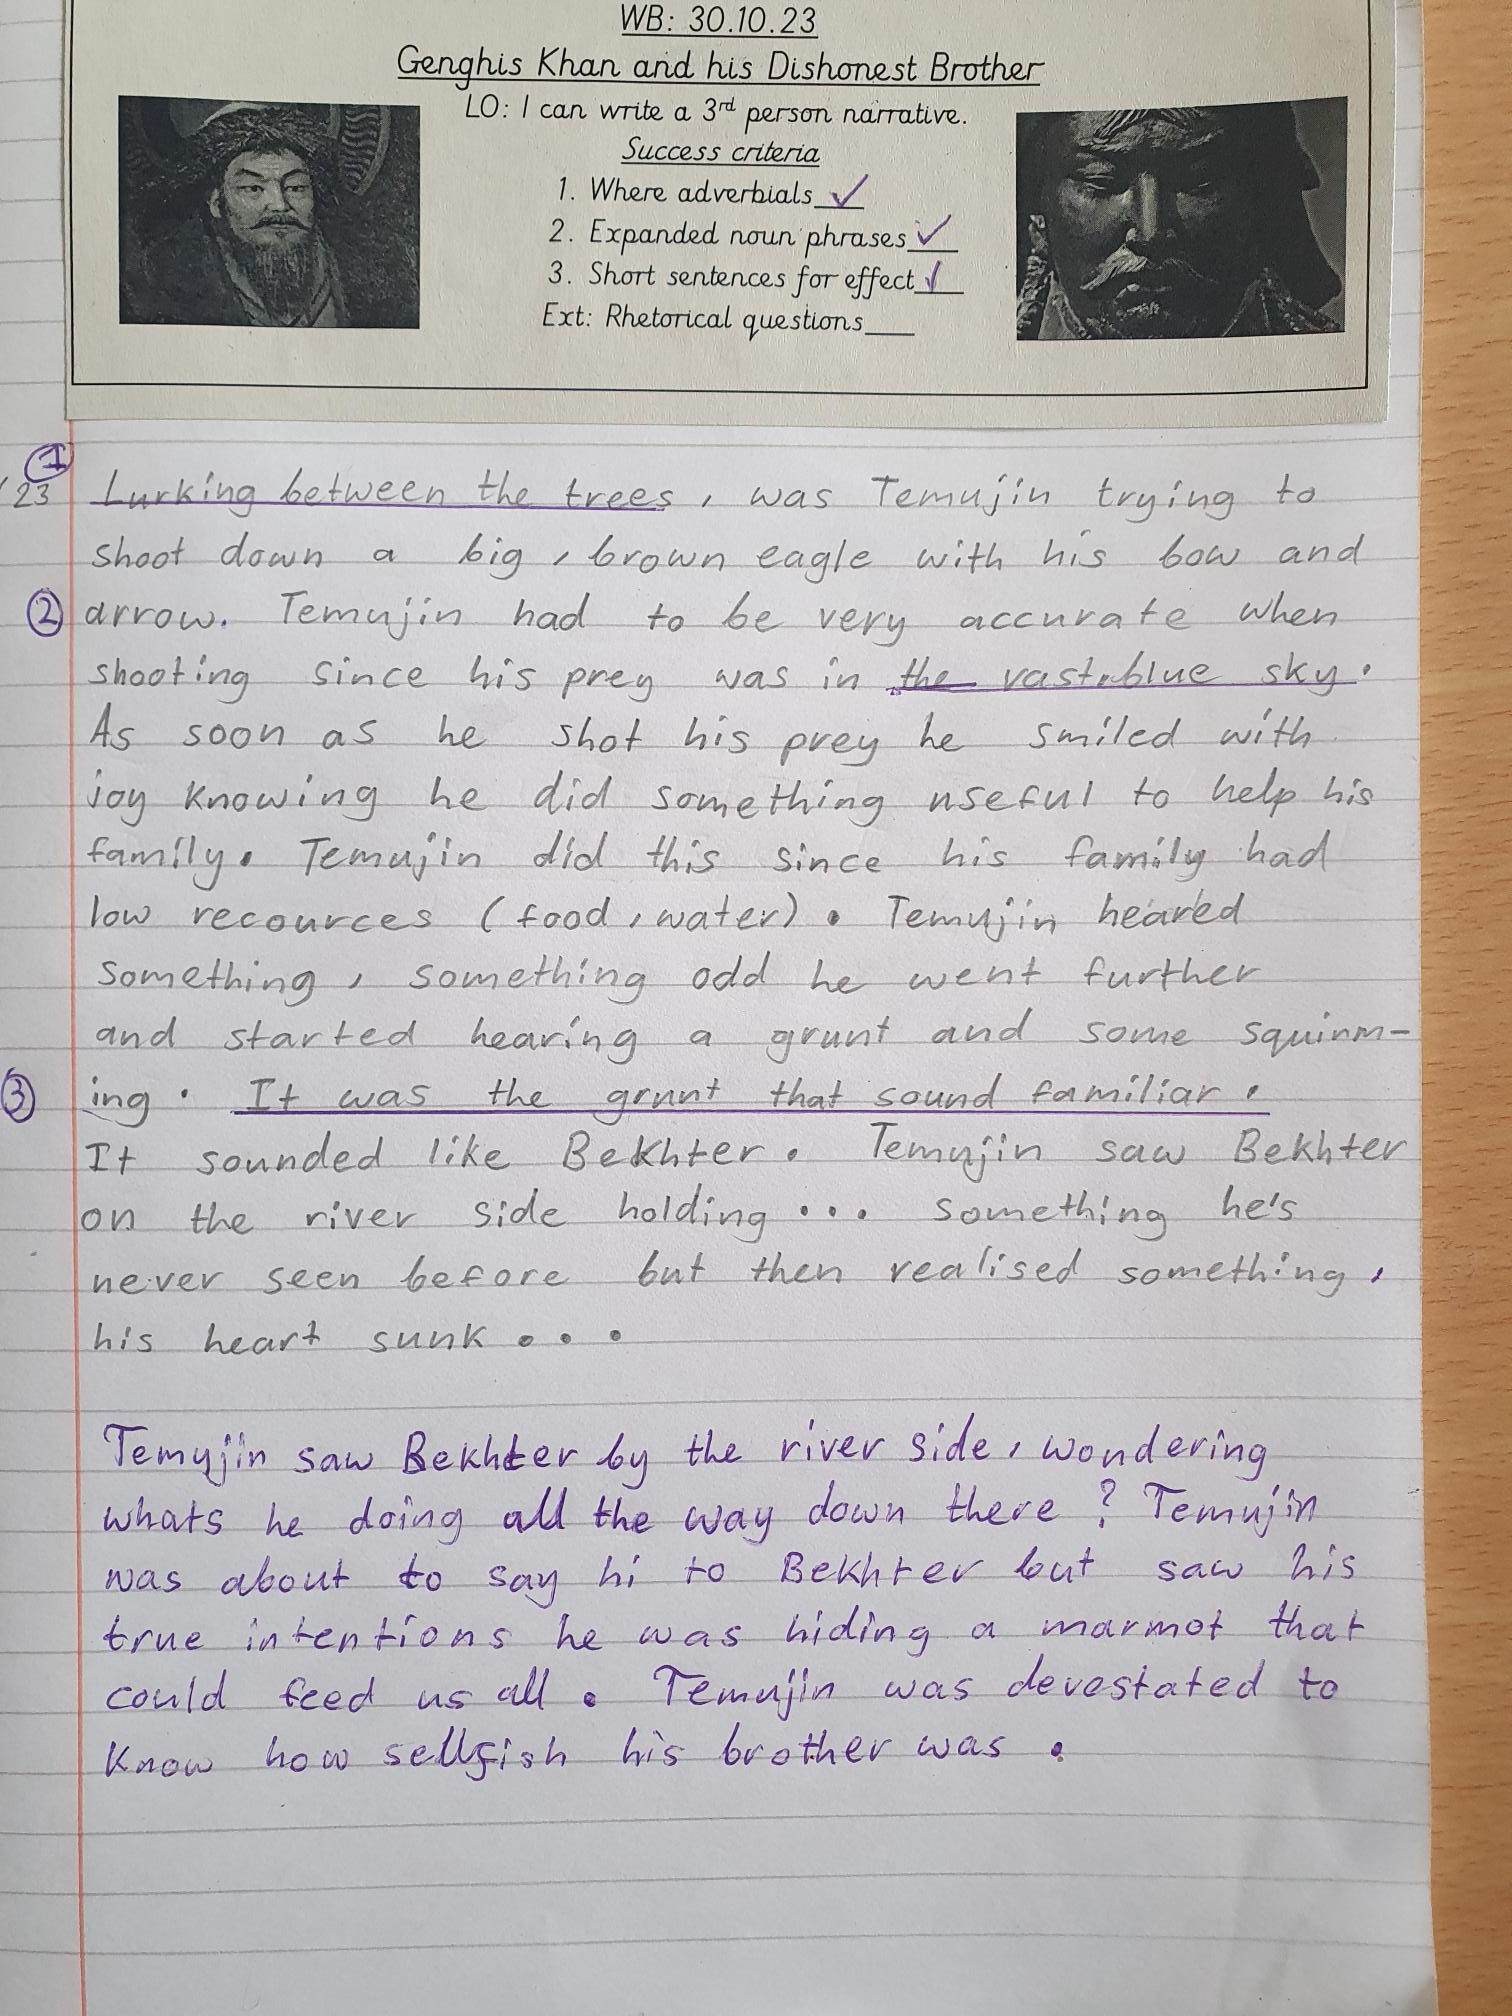 WB: 30.10.23
Genghis Khan and his Dishonest Brother
LO: I can write a 3rd person narrative.
Success criteria
1. Where adverbials ✓
2. Expanded noun phrases ✓
3. Short sentences for effect ✓
Ext: Rhetorical questions___
1
'23 Lurking between the trees, was Temujin trying to
shoot down a big, brown eagle with his bow and
2 arrow. Temujin had to be very accurate when
shooting since his prey was in the vast,blue sky.
As soon as he shot his prey he smiled with
joy knowing he did something useful to help his
family. Temujin did this since his family had
low recources (food, water). Temujin heared
something, something odd he went further
and started hearing a grunt and some squirm-
3 ing. It was the grunt that sound familiar.
It sounded like Bekhter. Temujin saw Bekhter
on the river side holding... something he's
never seen before but then realised something,
his heart sunk...
Temujin saw Bekhter by the river side, wondering
whats he doing all the way down there? Temujin
was about to say hi to Bekhter but saw his
true intentions he was hiding a marmot that
could feed us all. Temujin was devestated to
know how sellfish his brother was.